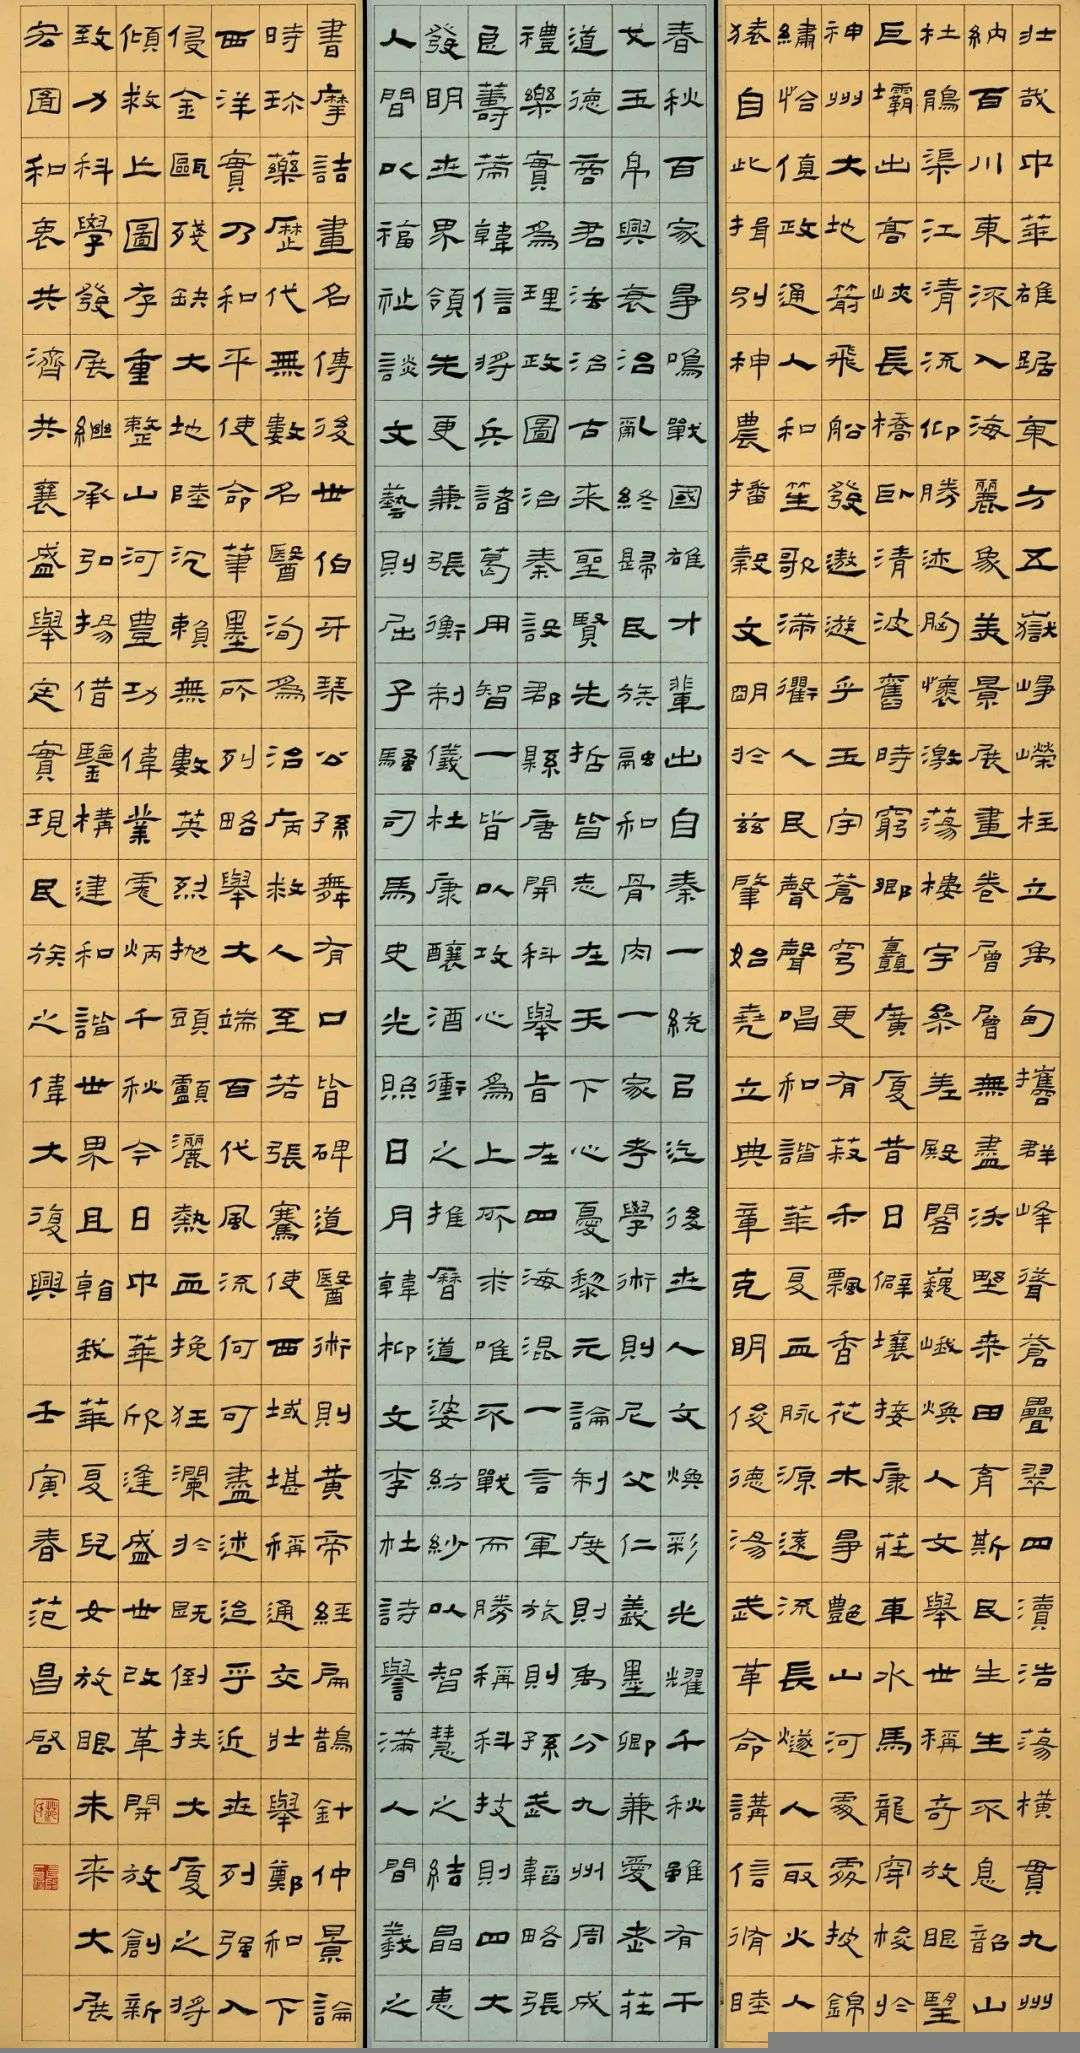 壯哉中華雄踞東方五嶽崢嶸柱立禹甸攜群峰聳蒼疊翠四瀆浩蕩橫貫九州
納百川東流入海麗象美景展畫卷層層無盡沃野桑田育斯民生生不息韶山
杜鵑渠江清流仰勝迹胸懷激蕩樓宇參差殿閣巍峨煥人文舉世稱奇放眼望
巨壩出高峽長橋臥清波舊時窮鄉矗廣廈昔日僻壤接康莊車水馬龍穿梭於
神州大地箭飛船發遨遊乎玉宇蒼穹更有菽禾飄香花木爭艷山河處處披錦
繡恰值政通人和笙歌滿衢人民聲聲唱和諧華夏血脉源遠流長燧人取火人
猿自此揖别神農播穀文明於兹肇始堯立典章克明俊德湯武革命講信脩睦
春秋百家爭鳴戰國雄才輩出自秦一統已迄後世人文煥彩光耀千秋雖有干
戈玉帛興衰治亂終歸民族融和骨肉一家考學術則尼父仁義墨卿兼愛老莊
道德商君法治古來聖賢先哲皆志在天下心憂黎元論制度則禹分九州周成
禮樂實爲理政圖治秦設郡縣唐開科舉旨在四海混一言軍旅則孫武韜略張
良籌策韓信將兵諸葛用智一皆以攻心爲上所求唯不戰而勝稱科技則四大
發明世界領先更兼張衡制儀杜康釀酒衝之推曆道婆紡紗以智慧之結晶惠
人間以福祉談文藝則屈子騷司馬史光照日月韓柳文李杜詩譽滿人間羲之
書摩詰畫名傳後世伯牙琴公孫舞有口皆碑道醫術則黃帝經扁鵲針仲景論
時珍藥歷代無數名醫洵爲治病救人至若張騫使西域堪稱通交壯舉鄭和下
西洋實乃和平使命筆墨所列略舉大端百代風流何可盡述迨乎近世列强入
侵金甌殘缺大地陸沉賴無數英烈抛頭顱灑熱血挽狂瀾於既倒扶大廈之將
傾救亡圖存重整山河豐功偉業彪炳千秋今日中華欣逢盛世改革開放創新
致力科學發展繼承弘揚借鑒構建和諧世界且看我華夏兒女放眼未來大展
宏圖和衷共濟共襄盛舉定實現民族之偉大復興 壬寅春范昌啓